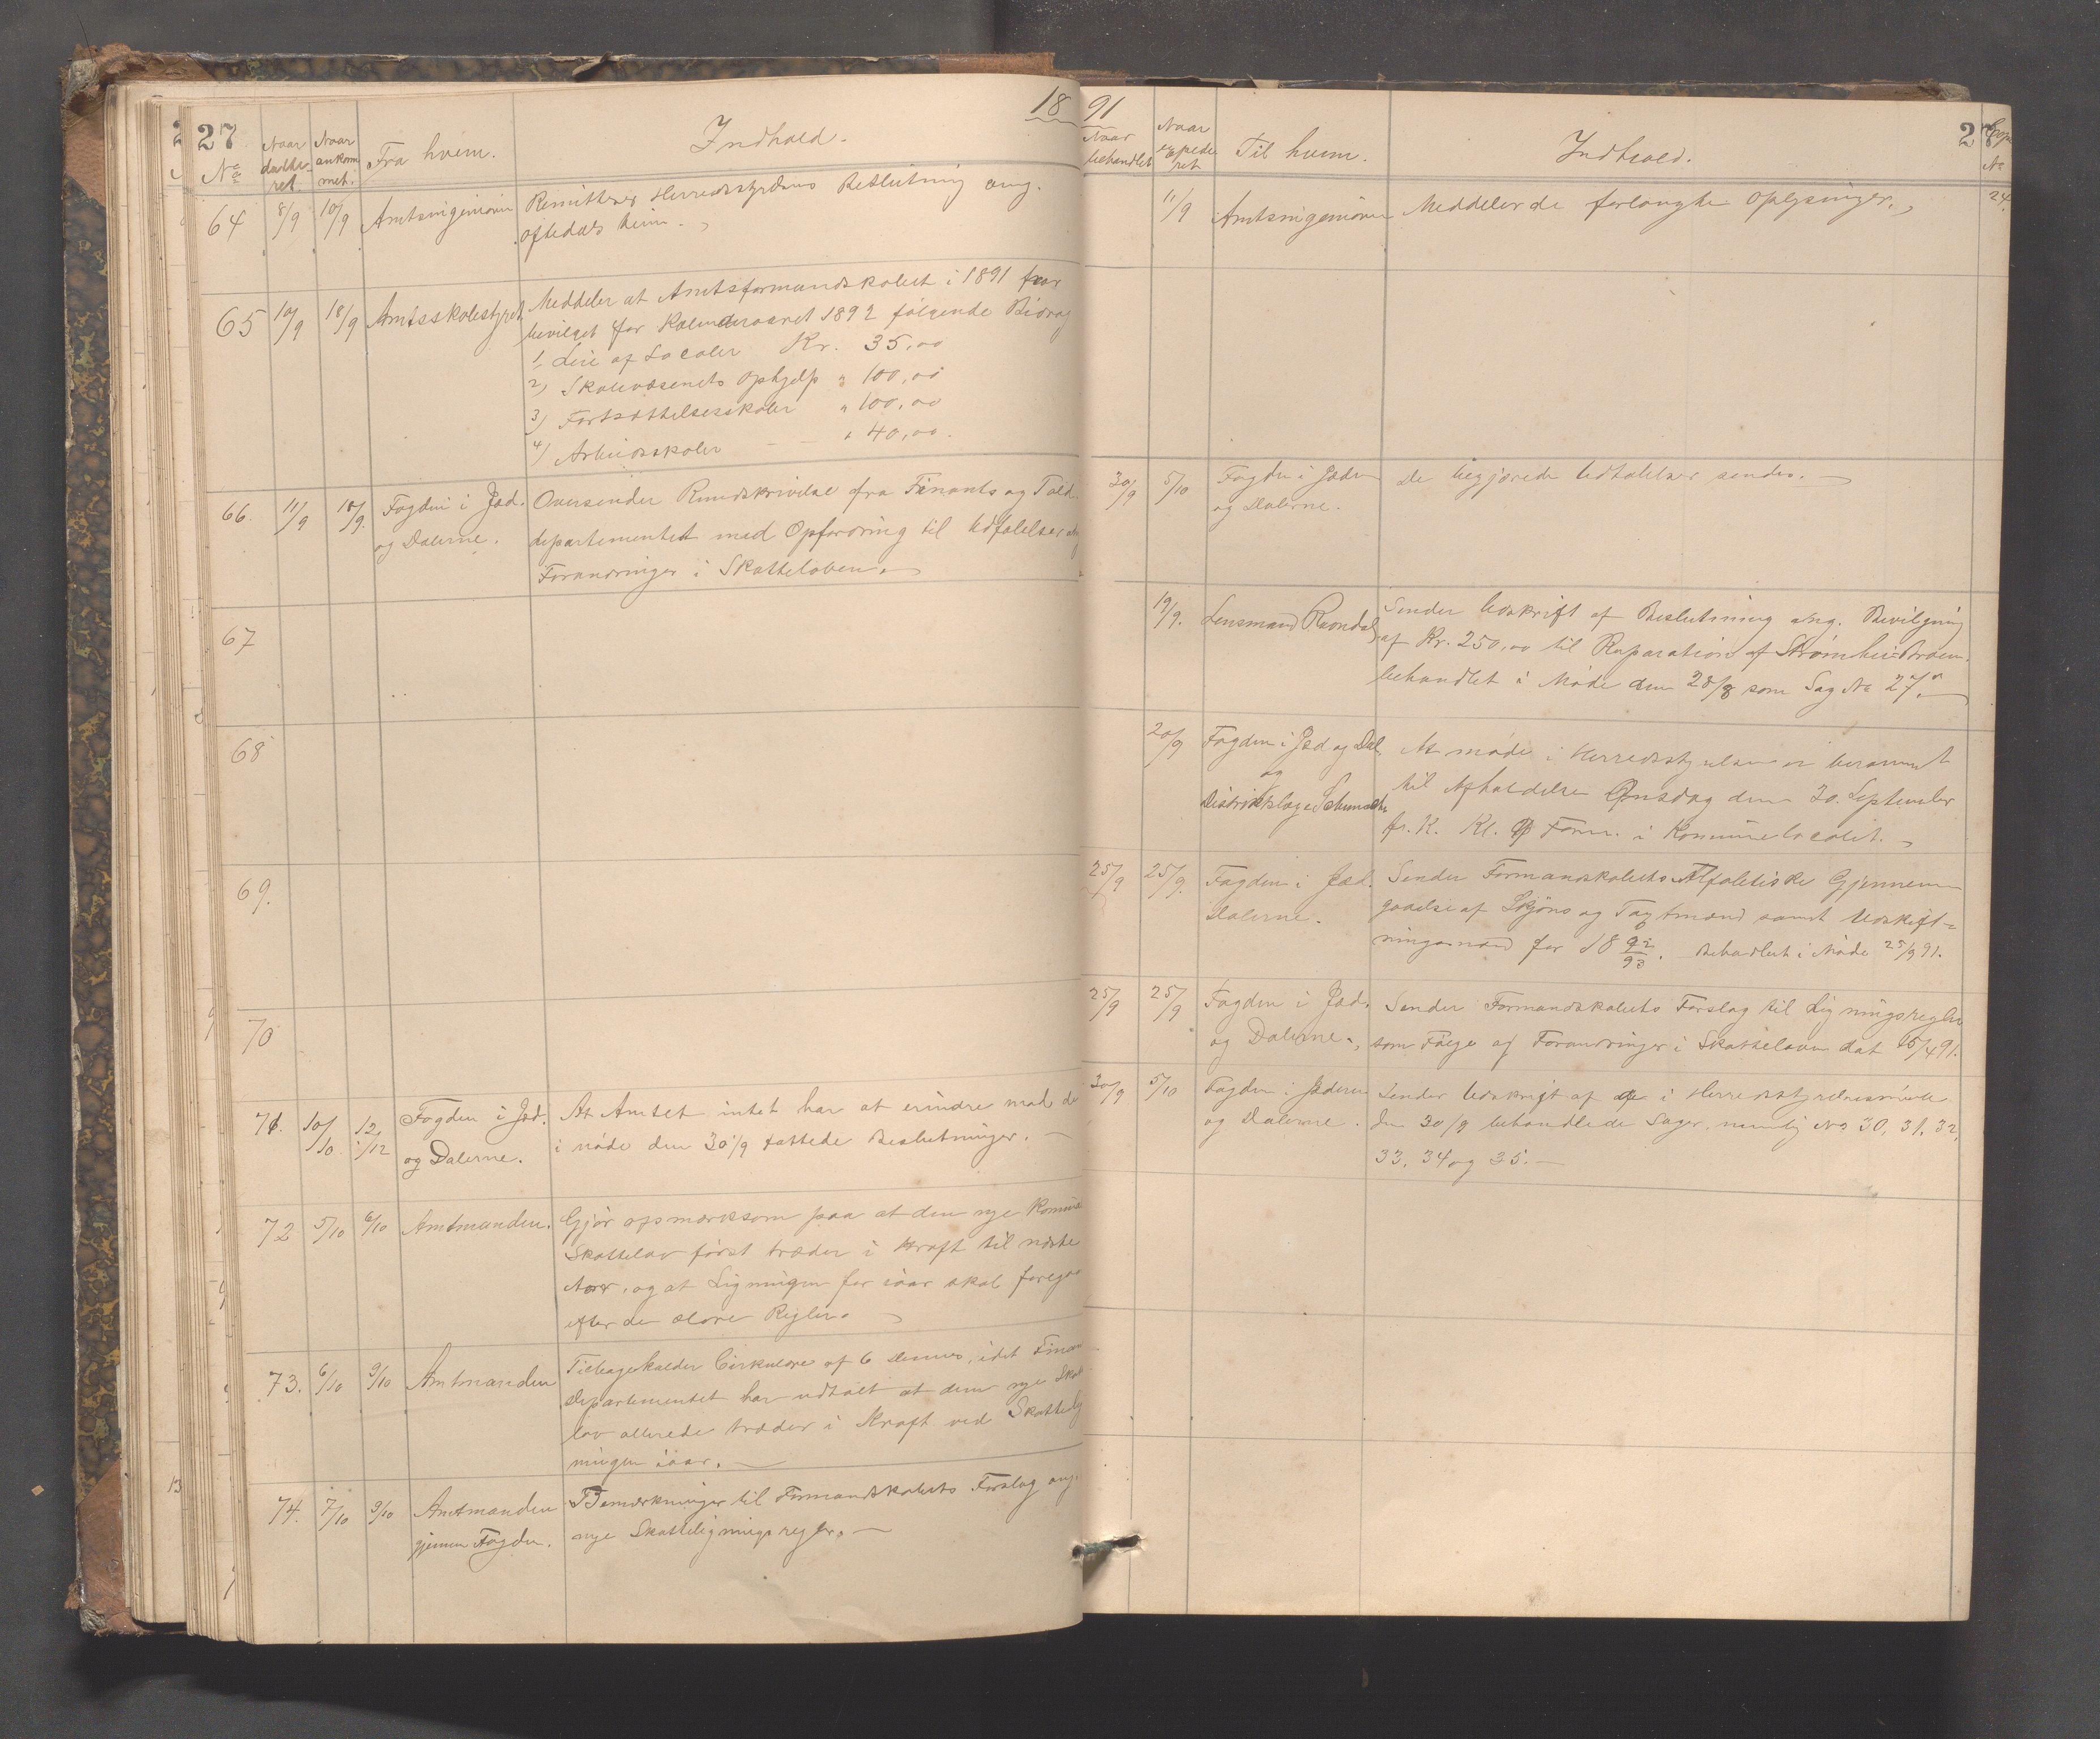 27
1891
Nº
Naar datte-ret
Naar ankom met.
Fra hvem.
Indhold.
64 8/9 10/9 Amtsingeniøren Remitterer Herredsstyrelsens Beslutning ang.
Oftedals
65 10/9 18/9 Amtsskolestyret Meddeler at Amtsformandskabet i 1891 har
bevilget for Kalenderaaret 1892 følgende Bidrag
1, Leie af Localer Kr. 35,00
2) Skolevæsenets Ophjelp " 100,00
3) Fortsættelsesskoler " 100,00
4) Arbeidsskoler — — " 40,00.
66. 11/9 18/9. Fogden i Jæd. Oversender Rundskrivelse fra Finants og Told-
og Dalerne. departementet med Opfordring til Udtalelser ang
Forandringer i Skatteloven.
67
68
69.
70
71. 10/10 12/12 Fogden i Jæd. At Amtet intet har at erindre mod de
og Dalerne. i møde den 30/9 fattede Beslutninger. —
72 5/10 6/10 Amtmanden. Gjør opmærksom paa at den nye Kommune
Skattelov først træder i Kraft til næste
Aar, og at Ligningen for iaar skal foregaa
efter de ældre Regler.
73. 6/10 9/10 Amtmanden Tilbagekalder Cirkulære af 6 Dennes, idet Finans
Departementet har udtalt at den nye Skatte
lov allerede træder i Kraft ved Skattelig
ningen iaar. —
74. 7/10 9/10 Amtmanden Bemærkninger til Formandskabets Forslag ang.
gjennem Fogden. nye Skatteligningsregler. —
28
Naar behandlet
Naar expede ret
Til hvem.
Indhold.
Copi Nº
11/9 Amtsingeniøren Meddeler de forlangte Oplysninger. 24.
30/9 5/10 Fogden i Jæderen De begjærede Udtalelser sendes.
og Dalerne.
19/9. Lensmand Sender Udskrift af Beslutning ang. Bevilgning
af Kr. 250,00 til Reparation af Strømhei-Broen.
behandlet i Møde den 28/8 som Sag Nº 27.
20/9 Fogden i Jæd og Dal. At møde i Herredsstyrelsen er berammet
og til Afholdelse Onsdag den 30. September
Distriktslæge
f. K. Kl. Form. i Kommunelocalet.
25/9 25/9. Fogden i Jæd. Sender Formandskabets Alfabetiske Gjennem-
Dalerne. gaaelse af Skjøns og Taxtmænd samt Udskift-
ningsmænd for 18 92/93. Behandlet i Møde 25/9 91.
25/9 25/9 Fogden i Jæd. Sender Formandskabets Forslag til Ligningsregler
og Dalerne. som Følge af Forandringer i Skatteloven dat 15/4 91.
30/9 5/10 Fogden i Jæderen Sender Udskrift af de i Herredsstyrelsesmøde
og Dalerne. den 30/9 behandlede Sager, nemlig Nº 30, 31, 32,
33, 34 og 35. —